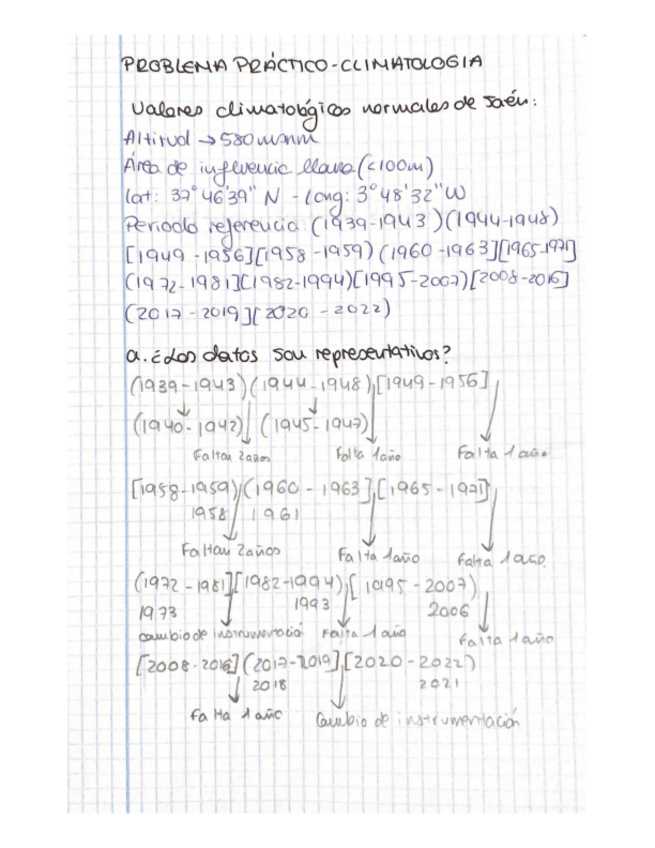 PROBLEMA PRÁCTICO-CLIMATOLOGIA
Valores climatológicos normales de Jaén:
Altitud → 580 msnm
Área de influencia llana (<100m)
lat: 37° 46'39" N - Long: 3° 48'32" W
Periodo referencia: (1939-1943)(1944-1948)
[1949-1956][1958-1959)(1960-1963][1965-1971]
(1972-1981][1982-1994)[1995-2007)[2008-2016]
(2017-2019][2020-2022)
a. ¿Los datos son representativos?
(1939-1943)(1944-1948),[1949-1956]
(1940-1942) (1945-1947)
Faltan 2 años Falta 1 año Falta 1 año
[1958-1959)(1960-1963],[1965-1971]
1958 1961
Faltan 2 años Falta 1 año Falta 1 año
(1972-1981][1982-1994),[1995-2007)
1973 1993 2006
cambio de instrumentación Falta 1 año Falta 1 año
[2008-2016](2017-2019],[2020-2022)
2018 2021
Falta 1 año Cambio de instrumentación